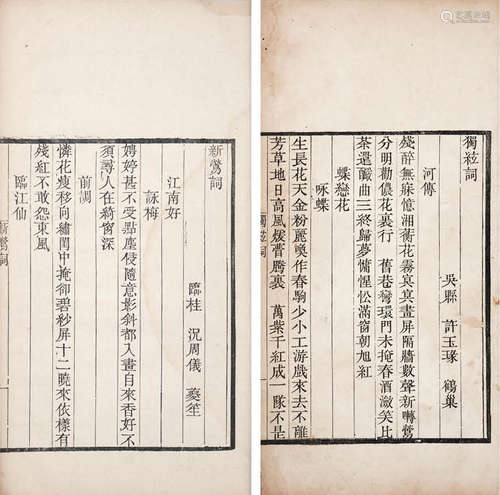 獨弦詞
吳縣 許玉瑑 鶴巢
河傳
殘醉無寐憶湘蘅花霧冥冥畫屏隔牆數聲新囀鶯
分明勸儂花裏行 舊巷彎環門未掩春酒瀲笑比
茶還釅曲三終歸夢慵惺忪滿窗朝旭紅
蝶戀花
咏蝶
生長花天金粉麗喚作春駒少小工游戲來去不離
芳草地日高風煖蕾騰裏 萬紫千紅成一隊不是
新鶯詞
臨桂 況周儀 夔笙
江南好
詠梅
娉婷甚不受點塵侵隨意影斜都入畫自來香好不
須尋人在綺窗深
前調
憐花瘦移向繡閨中掩卻碧紗屏十二曉來依樣有
殘紅不敢怨東風
臨江仙
新鶯詞